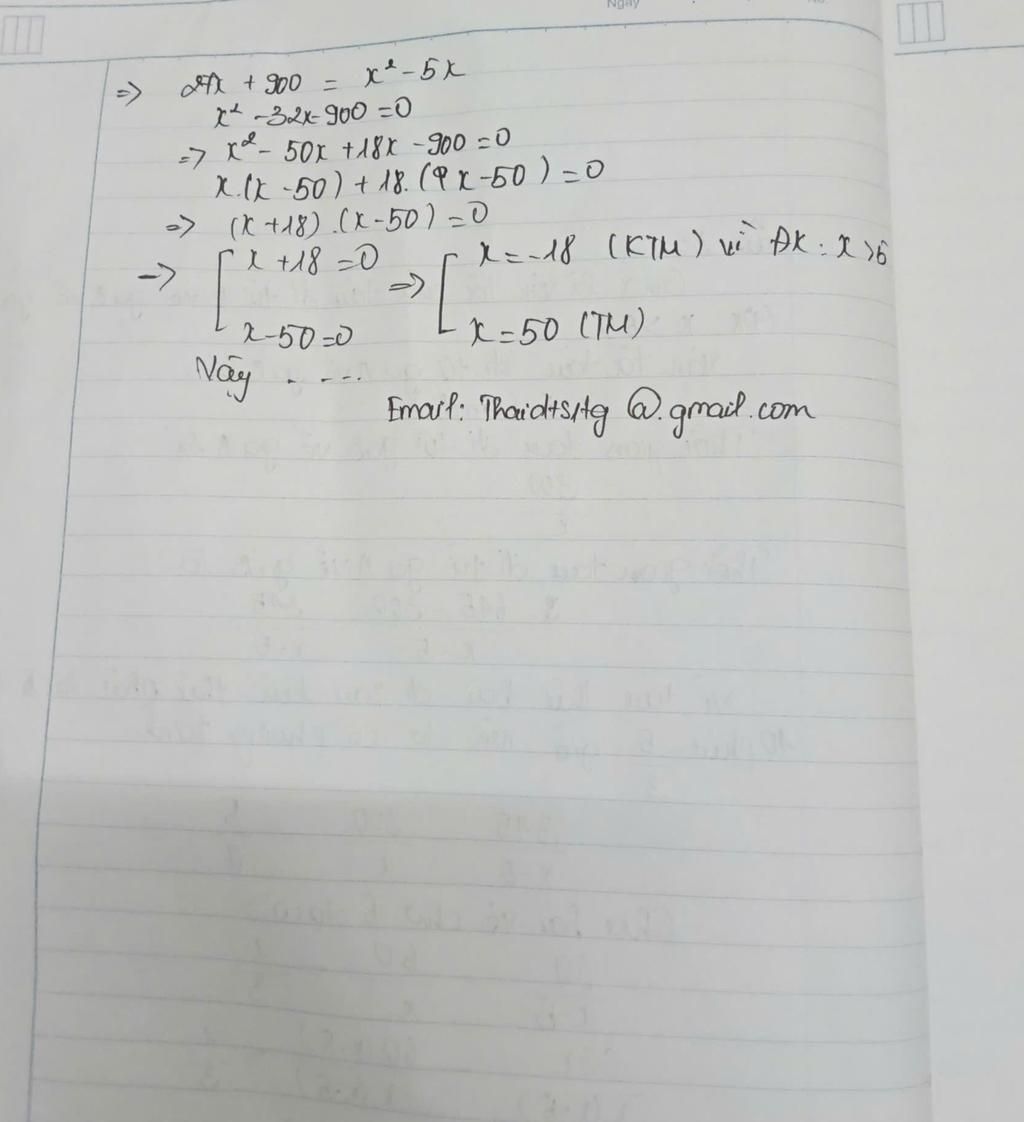 Ngày
=> 27x + 900 = x² - 5x
x² - 32x - 900 = 0
=> x² - 50x + 18x - 900 = 0
x.(x - 50) + 18.(x - 50) = 0
=> (x + 18).(x - 50) = 0
-> [ x + 18 = 0 => [ x = -18 (KTM) vì ĐK: x > 5
x - 50 = 0 x = 50 (TM)
Vậy . ....
Email: @.gmail.com